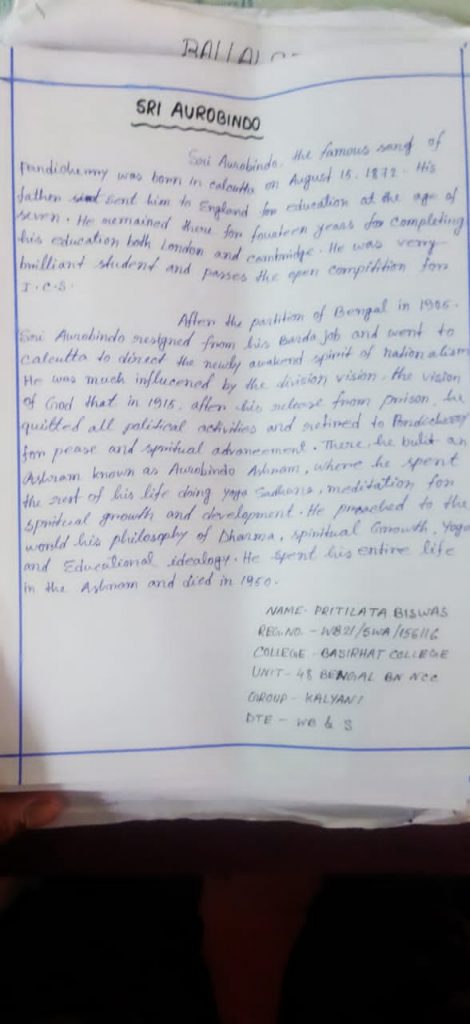 SRI AUROBINDO
Sri Aurobindo, the famous song of
Pondicherry was born in calcutta on August 15, 1872. His
father sent him to England for education at the age of
seven. He remained there for fourteen years for completing
his education both London and cambridge. He was very
brilliant student and passes the open compitition for
I.C.S.
After the partition of Bengal in 1905.
Sri Aurobindo resigned from his Barda job and went to
Calcutta to direct the newly awakend spirit of nationalism
He was much influcened by the division vision. the vision
of God that in 1915. after his release from prison, he
quitted all political activities and retired to Pondicherry
for pease and spiritual advancement. There, he bulit an
Ashram known as Aurobindo Ashram, where he spent
the rest of his life doing yoga Sadhana, meditation for
spiritual growth and development. He preached to the
world his philosophy of Dharma, spiritual Growth, Yoga
and Educational idealogy. He spent his entire life
in the Ashram and died in 1950.
NAME- PRITILATA BISWAS
REG.NO. - WB21/SWA/156116
COLLEGE - BASIRHAT COLLEGE
UNIT- 48 BENGAL BN NCC
GROUP - KALYANI
DTE - WB & S